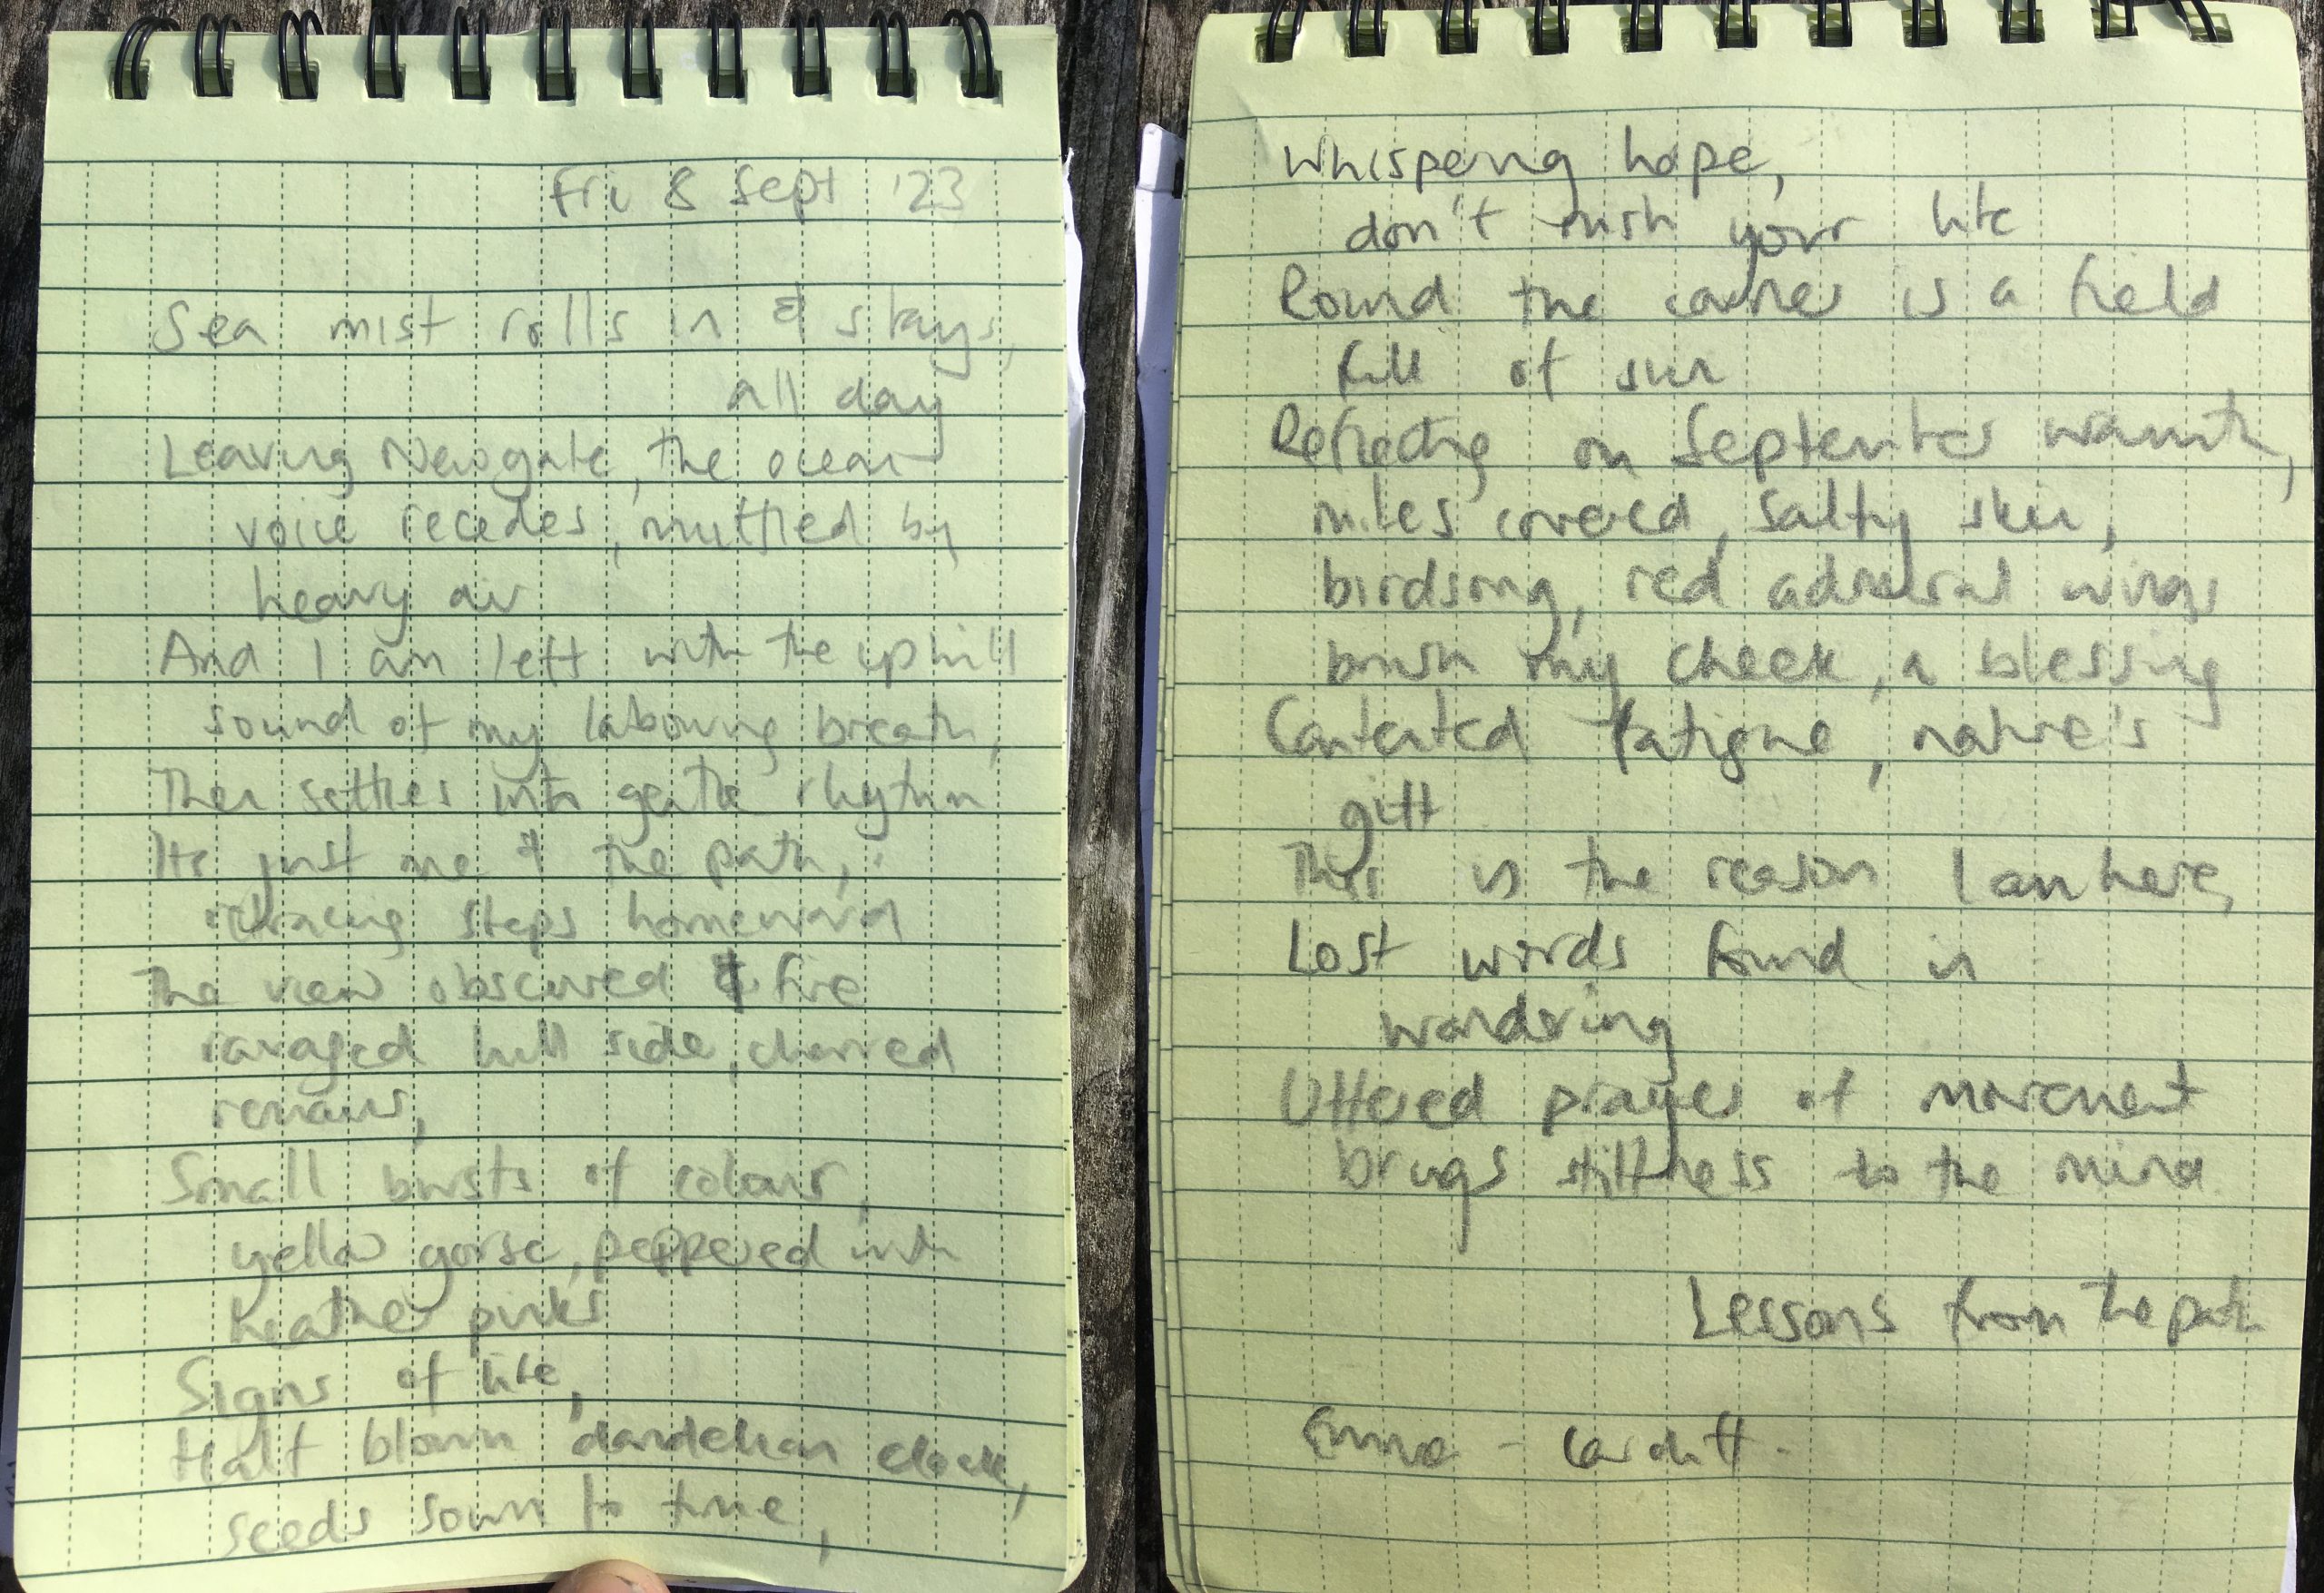 Fri 8 Sept '23
Sea mist rolls in & stays,
all day
Leaving Newgale, the ocean
voice recedes, muffled by
heavy air
And I am left with the uphill
sound of my labouring breath,
Then settles into gentle rhythm
Its just me & the path,
retracing steps homeward
The view obscured & fire
ravaged hill side, charred
remains,
Small bursts of colour,
yellow gorse, peppered with
heather pinks
Signs of life,
Half blown dandelion clock,
seeds sown to time,
Whispering hope,
don't rush your life
Round the corner is a field
full of sun
Reflecting on September warmth,
miles covered, salty skin,
birdsong, red admiral wings
brush my cheek, a blessing
Contented fatigue, nature's
gift
This is the reason I am here,
Lost words found in
wandering
Uttered prayer of movement
brings stillness to the mind
Lessons from the path
Emma - Cardiff.